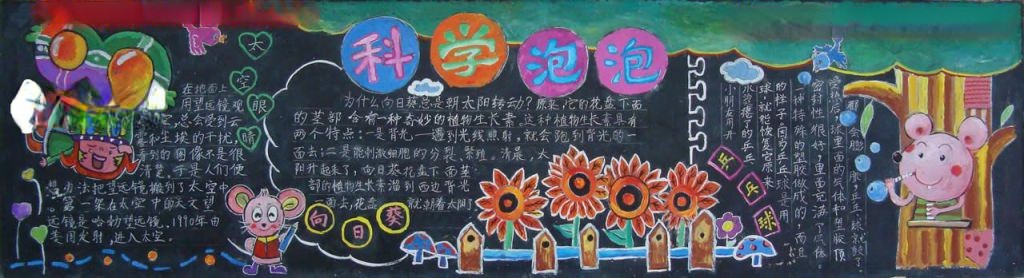 科学泡泡
太空眼睛
在地面上
用望远镜观
空总会受到云
和尘埃的干扰,
看到的图像不是很
清楚。于是人们便
想办法把望远镜搬到了太空中
第一架在太空中的天文望
远镜是哈勃望远镜。1990年由
美国发射,进入太空。
为什么向日葵总是朝太阳转动?原来,它的花盘下面
的茎部含有一种奇妙的植物生长素。这种植物生长素具有
两个特点:一是背光——遇到光线照射,就会跑到背光的一
面去;二是能刺激细胞的分裂、繁殖。清晨,太
阳升起来了,向日葵花盘下面茎
部的植物生长素溜到西边背光
一面去,花盘 就朝着太阳了
向日葵
乒乓球
小朋友用开
水烫瘪了的乒乓
球,就能恢复官原来
的样子,因为乒乓球是用
一种特殊的塑胶做成的,而且
密封性很好,里面充满了气体
球里面的气体和塑胶顶
会膨胀,乒乓球就鼓了